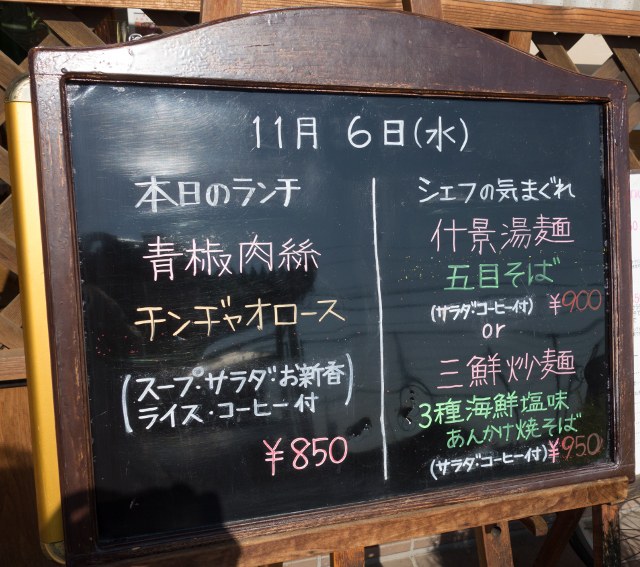 11月 6日(水)
本日のランチ
青椒肉絲
チンヂャオロース
(スープ・サラダ・お新香
ライス・コーヒー付)
¥850
シェフの気まぐれ
什景湯麺
五目そば
(サラダ・コーヒー付) ¥900
or
三鮮炒麺
3種海鮮塩味
あんかけ焼そば
(サラダ・コーヒー付) ¥950